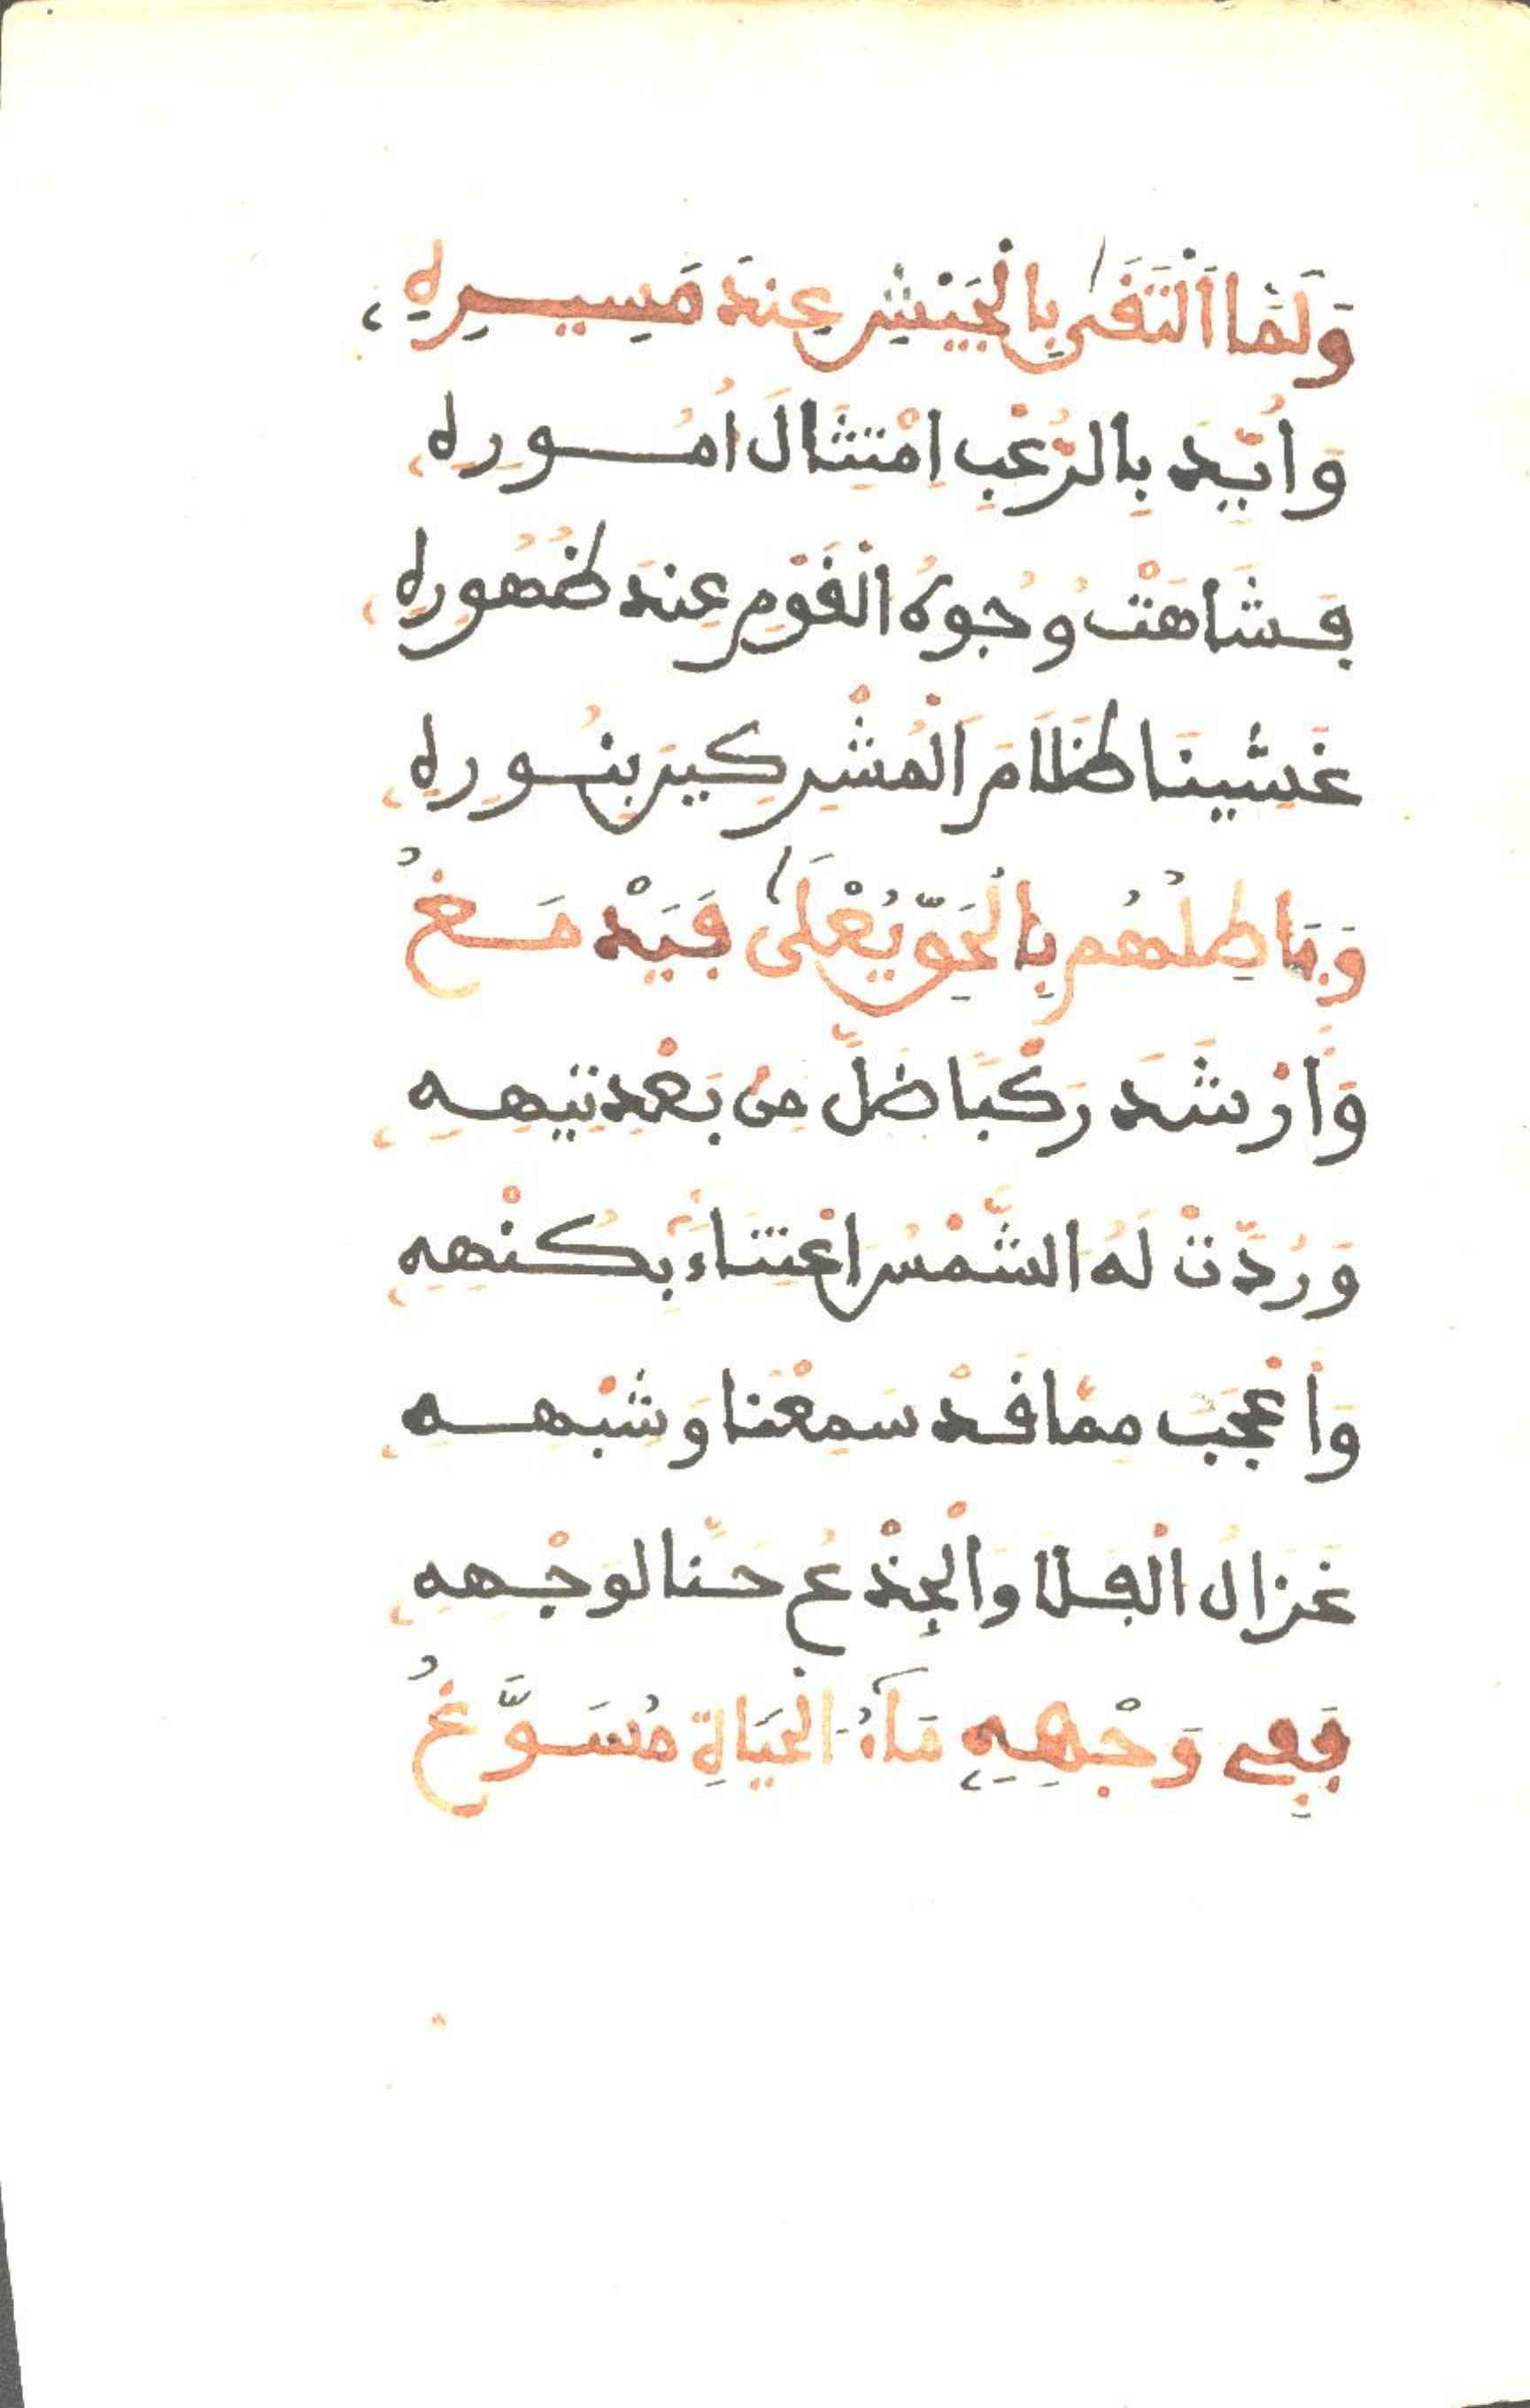 وَلَمَّا الْتَقَى بِالْجَيْشِ عِندَ مَسِيرِهِ
وَأُيِّدَ بِالرُّعْبِ امْتِثَالَ أُمُورِهِ
فَشَاهَتْ وُجُوهُ الْقَوْمِ عِندَ ظُهُورِهِ
غَشِينَا ظَلَامَ الْمُشْرِكِينَ بِنُورِهِ
وَبَاطِلُهُم بِالْحَقِّ يُعْلَى فَيُدْمَغُ
وَأَرْشَدَ رَكْبًا ضَلَّ مِن بَعْدِ تِيهِهِ
وَرُدَّتْ لَهُ الشَّمْسُ اعْتِنَاءً بِكُنْهِهِ
وَأَعْجَبَ مِمَّا قَدْ سَمِعْنَا وَشِبْهِهِ
غَزَالُ الْفَلَا وَالْجِذْعُ حَنَّا لِوَجْهِهِ
فَفِي وَجْهِهِ مَاءُ الْحَيَاةِ مُسَوَّغُ